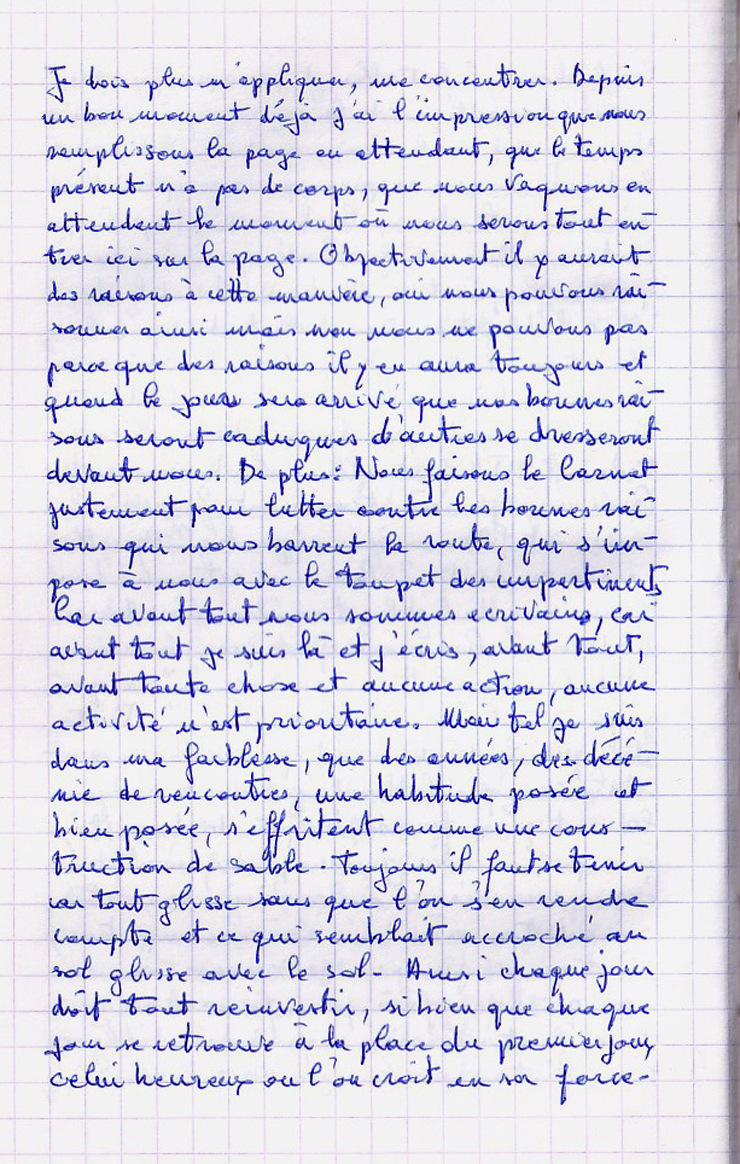 Je dois plus m'appliquer, me concentrer. Depuis
un bon moment déjà j'ai l'impression que nous
remplissons la page en attendant, que le temps
présent n'a pas de corps, que nous vaquons en
attendant le moment où nous serons tout en-
tier ici sur la page. Objectivement il y aurait
des raisons à cette manière, oui nous pouvons rai-
sonner ainsi mais non nous ne pouvons pas
parce que des raisons il y en aura toujours et
quand le jour sera arrivé que nos bonnes rai-
sons seront caduques d'autres se dresseront
devant nous. De plus : Nous faisons le Carnet
justement pour lutter contre les bonnes rai-
sons qui nous barrent la route, qui s'im-
pose à nous avec le toupet des impertinents
Car avant tout nous sommes ecrivains, car
avant tout je suis là et j'écris, avant tout,
avant toute chose et aucune action, aucune
activité n'est prioritaire. Mais tel je suis
dans ma faiblesse, que des années, des décé-
nie de rencontres, une habitude posée et
bien posée, s'effritent comme une cons-
truction de sable. Toujours il faut se tenir
car tout glisse sans que l'on s'en rende
compte et ce qui semblait accroché au
sol glisse avec le sol. Ainsi chaque jour
doit tout réinvestir, si bien que chaque
jour se retrouve à la place du premier jour,
celui heureux ou l'on croit en sa force.